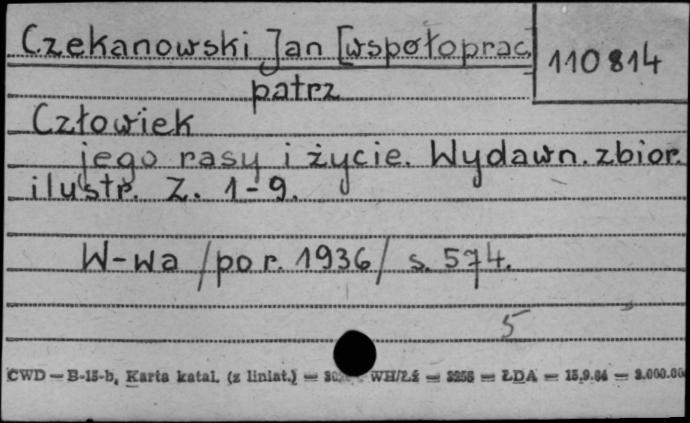 Czekanowski Jan [wspołoprac.
110814
patrz
Człowiek
jego rasy i życie. Wydawn. zbior.
ilustr. Z. 1-9.
W-wa /po r. 1936/ s. 574.
5
CWD — B-15-b, Karta katal. (z liniat.) — WH/Łż — 3255 — ŁDA — 15.9.64 — 2.000.00